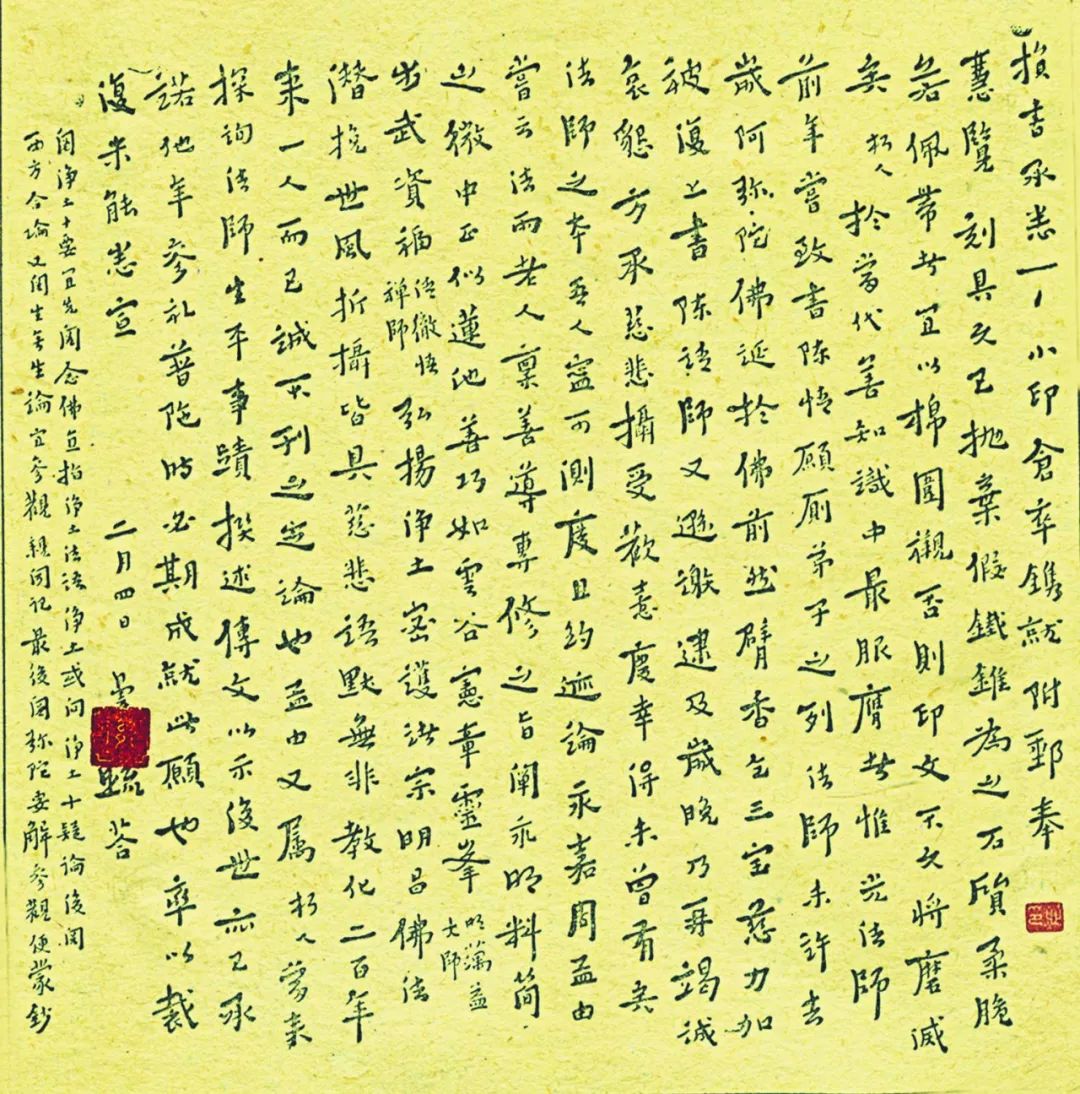 損書承悉一一小印倉卒鐫就附郵奉
慧覽刻具久已拋棄假鐵錐為之石質柔脆
若佩帶者宜以棉圍襯否則印文不久將磨滅
矣朽人於當代善知識中最服膺者惟光法師
前年嘗致書陳情願廁弟子之列法師未許去
歲阿彌陀佛誕於佛前然臂香乞三寶慈力加
被復上書陳請師又遜謝逮及歲晚乃再竭誠
哀懇方承慈悲攝受歡喜慶幸得未曾有矣
法師之本吾人寧可測度且約迹論永嘉周孟由
嘗云法雨老人稟善導專修之旨闡永明料簡
之微中正似蓮池善巧如雲谷憲章靈峯明蕅益大師
步武資福清徹悟禪師弘揚淨土密護諸宗明昌佛法
潛挽世風折攝皆具慈悲語默無非教化二百年
來一人而已誠不刊之定論也孟由又屬朽人當來
探詢法師生平事蹟撰述傳文以示後世亦已承
諾他年參禮普陀時必期成就此願也率以裁
復未能悉宣
二月四日 曇疏答
閱淨土十要宜先閱念佛直指淨土法語淨土或問淨土十疑論後閱
西方合論又閱生無生論宜參觀親聞記最後閱彌陀要解參觀便蒙鈔